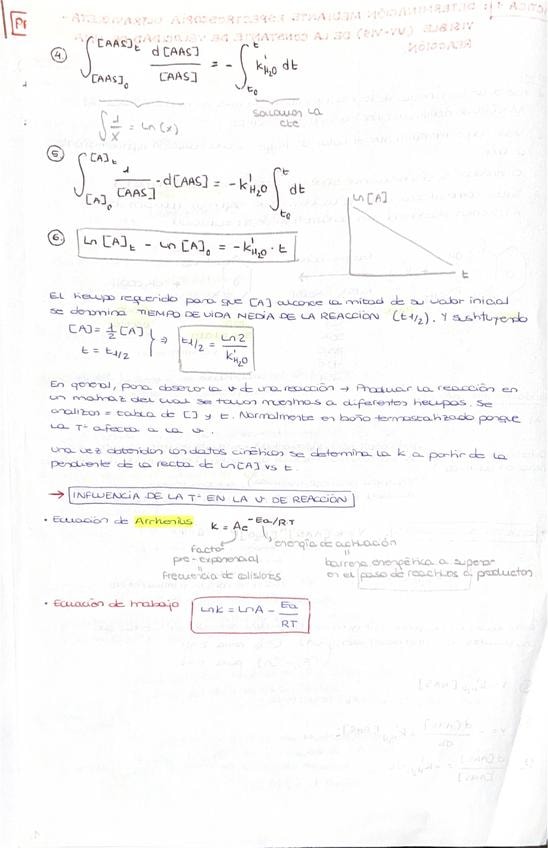 Pr
④ ∫[AAS]₀^[AAS]t d[AAS]/[AAS] = - ∫t₀^t k'H₂O dt
∫ 1/x = Ln(x)
sacamos la
cte
⑤ ∫[A]₀^[A]t 1/[AAS] · d[AAS] = -k'H₂O ∫t₀^t dt
⑥ Ln [A]t - Ln [A]₀ = -k'H₂O · t
Ln[A]
t
El tiempo requerido para que [A] alcance la mitad de su valor inicial
se denomina TIEMPO DE VIDA MEDIA DE LA REACCIÓN (t1/2). Y sustituyendo
[A] = 1/2 [A]
t = t1/2
} ⇒ t1/2 = Ln2/k'H₂O
En general, para observar la v de una reacción → Producir la reacción en
un matraz del cual se toman muestras a diferentes tiempos. Se
analizan = tabla de [] y t. Normalmente en baño termostatizado porque
la Tª afecta a la v.
Una vez obtenidos los datos cinéticos se determina la k a partir de la
pendiente de la recta de Ln[A] vs t.
→ INFLUENCIA DE LA Tª EN LA V DE REACCIÓN
· Ecuación de Arrhenius k = Ae^-Ea/RT
Factor
pre-exponencial
=
Frecuencia de colisiones
energía de activación
=
barrera energética a superar
en el paso de reactivos a productos
· Ecuación de trabajo Lnk = LnA - Ea/RT